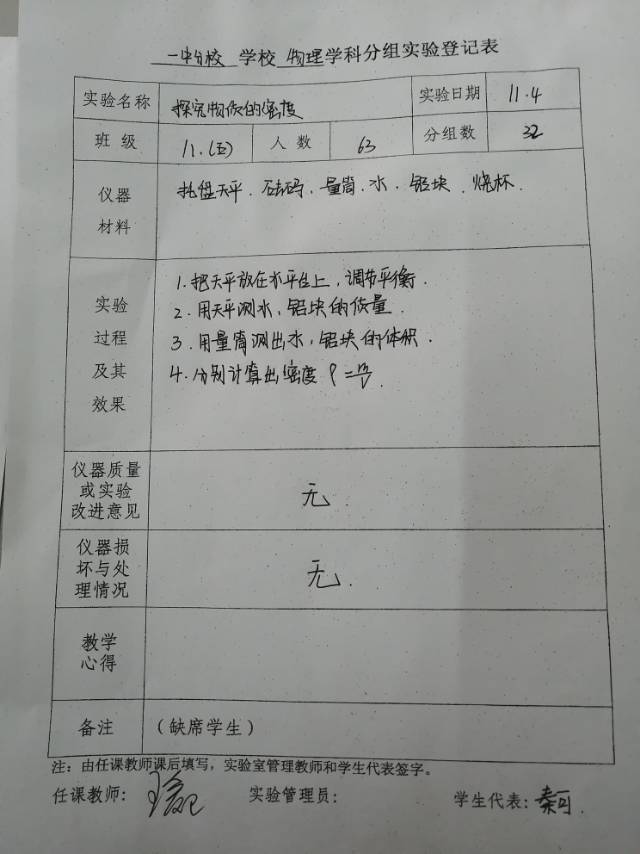 一中分校 学校 物理学科分组实验登记表
实验名称 探究物质的密度 实验日期 11.4
班 级 八.(五) 人 数 63 分组数 32
仪器 材料 托盘天平、砝码、量筒、水、铝块、烧杯.
实验 过程 及其 效果
1.把天平放在水平台上,调节平衡.
2.用天平测水,铝块的质量.
3.用量筒测出水,铝块的体积.
4.分别计算出密度 ρ=m/V
仪器质量
或实验
改进意见
无
仪器损
坏与处
理情况
无.
教学
心得
备注 (缺席学生)
注:由任课教师课后填写,实验室管理教师和学生代表签字。
任课教师: 实验管理员: 学生代表: